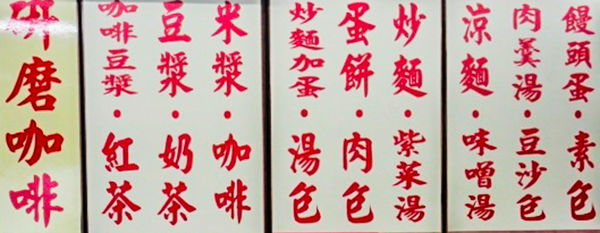 饅頭蛋·素包
肉羹湯·豆沙包
涼麵·味噌湯
炒麵·紫菜湯
蛋餅·肉包
炒麵加蛋·湯包
米漿·咖啡
豆漿·奶茶
咖啡豆漿·紅茶
研磨咖啡